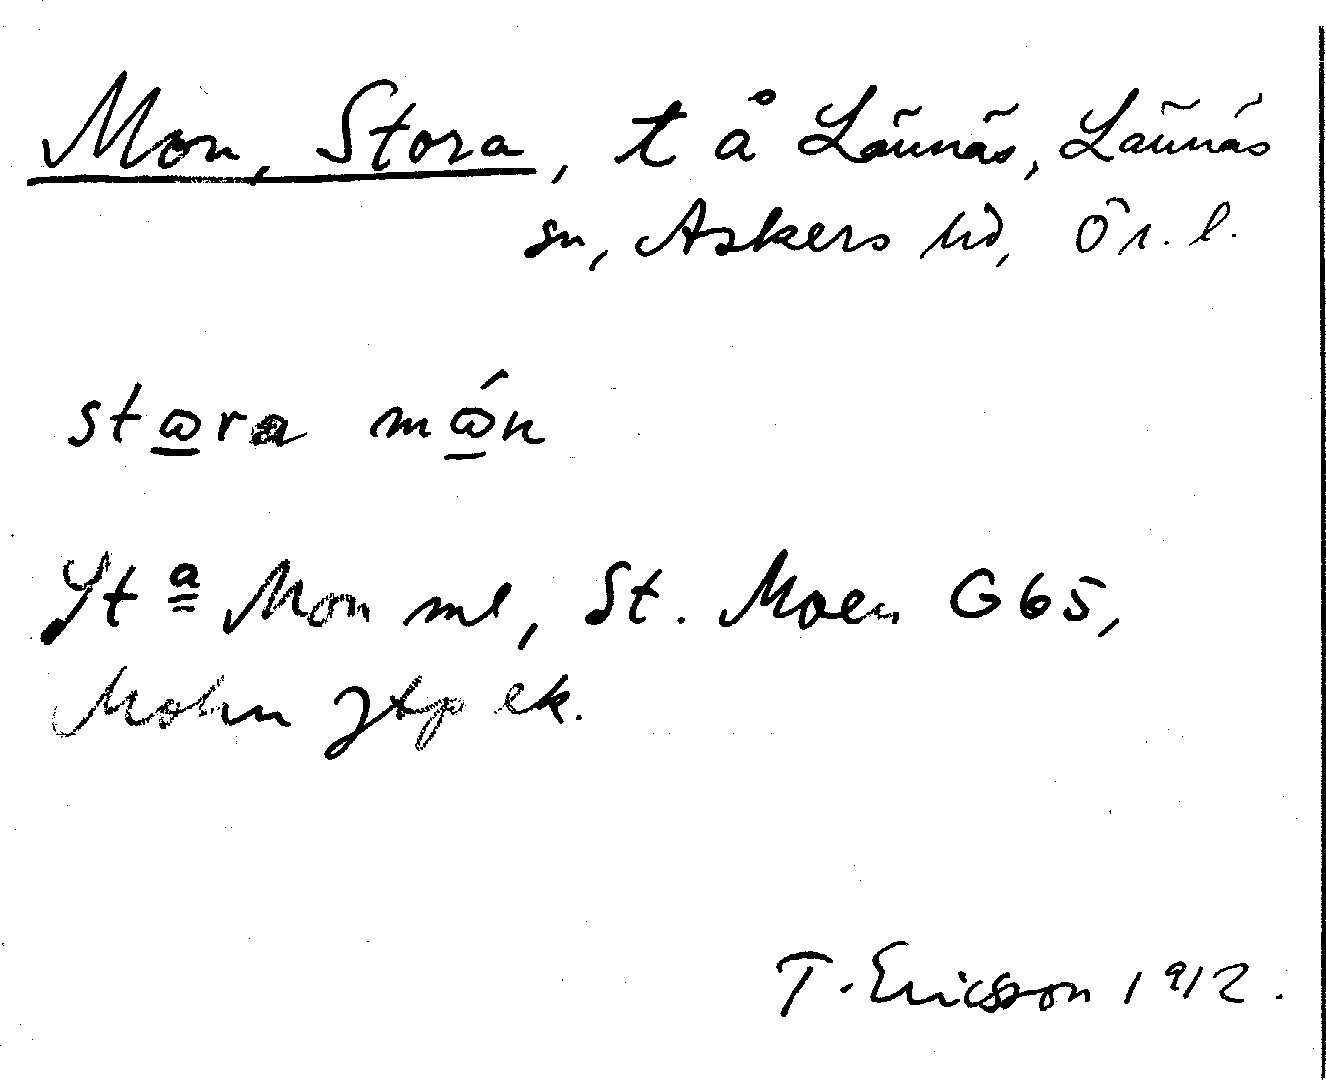 Mon, Stora, t å Lännäs, Lännäs
sn, Askers hd, Ör. l.
stωra mώn
St a Mon ml, St. Moen G65,
Mohn jtp ek.
T. Ericsson 1912.